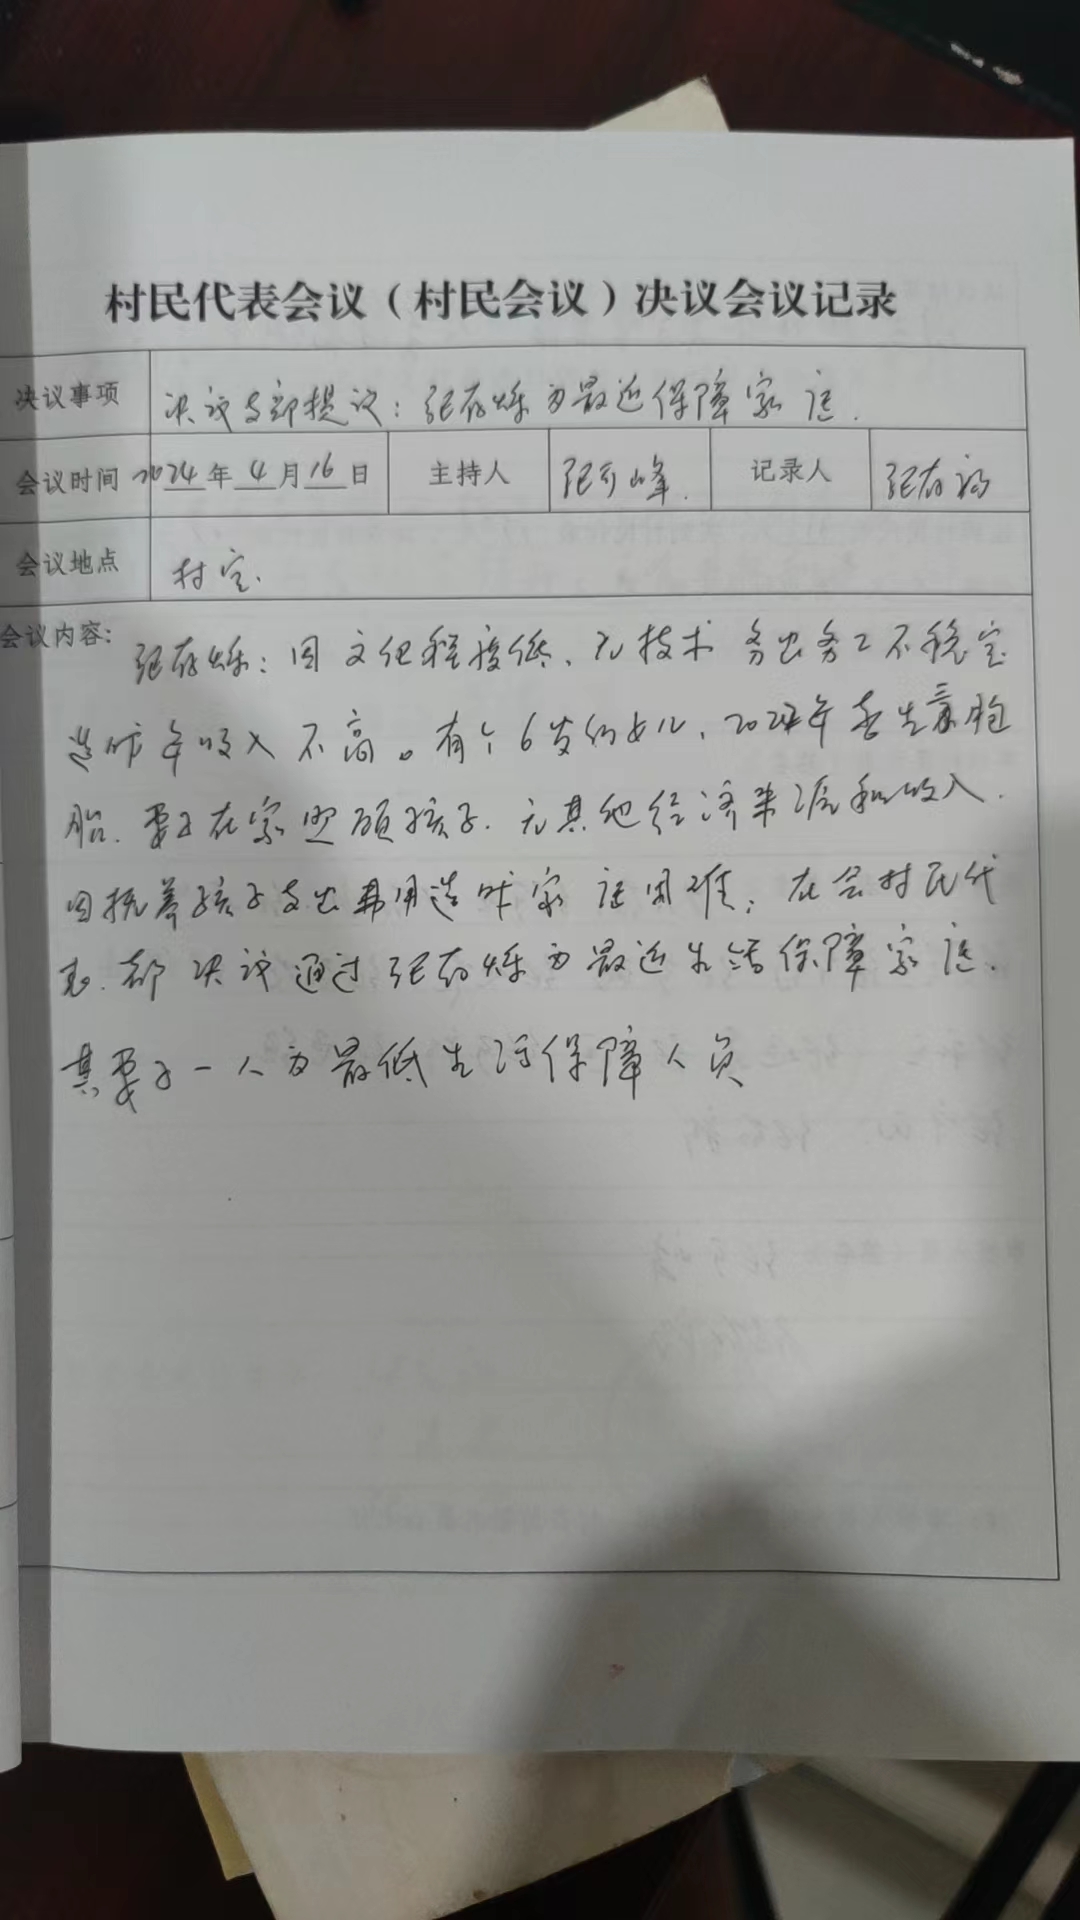 村民代表会议（村民会议）决议会议记录
决议事项 决议支部提议：张存烁为最近保障家庭.
会议时间 2024年4月16日 主持人 张峰. 记录人 张存
会议地点 村室.
会议内容：张存烁：因文化程度低、无技术 务出务工不稳定
造成年收入不高。有个6岁的女儿、2024年去生龙胞
胎.妻子在家照顾孩子.无其他经济来源和收入.
因抚养孩子支出费用造成家庭困难；在会村民代
表.都决议通过张存烁为最近生活保障家庭、
其妻子一人为最低生活保障人员